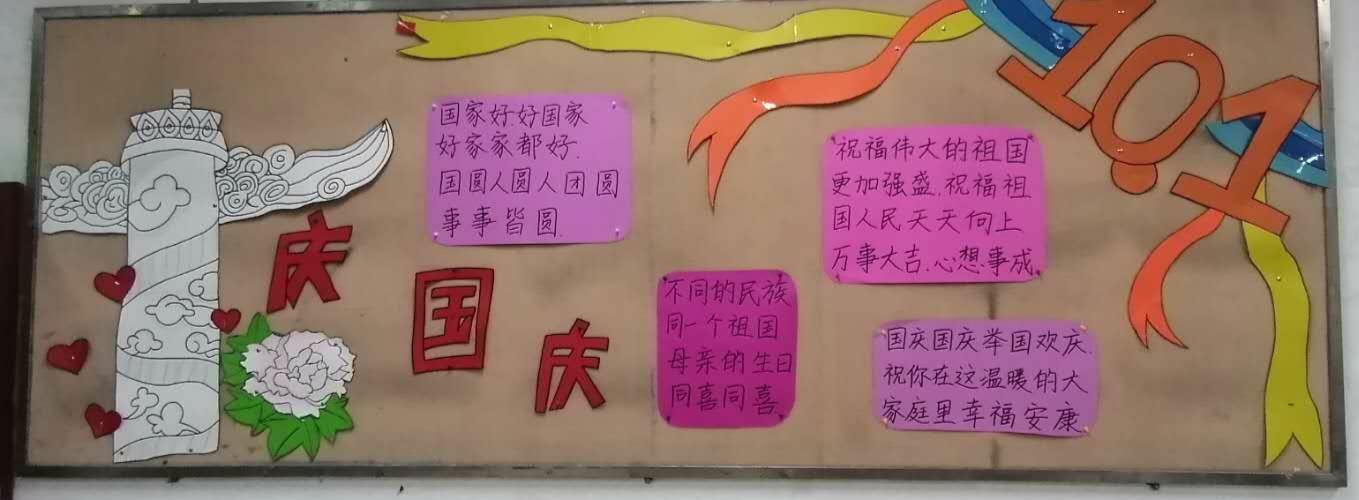 庆国庆
国家好好国家
好家家都好.
国圆人圆人团圆
事事皆圆.
不同的民族
同一个祖国
母亲的生日
同喜同喜
祝福伟大的祖国
更加强盛.祝福祖
国人民天天向上
万事大吉.心想事成
国庆国庆举国欢庆.
祝你在这温暖的大
家庭里幸福安康
10.1